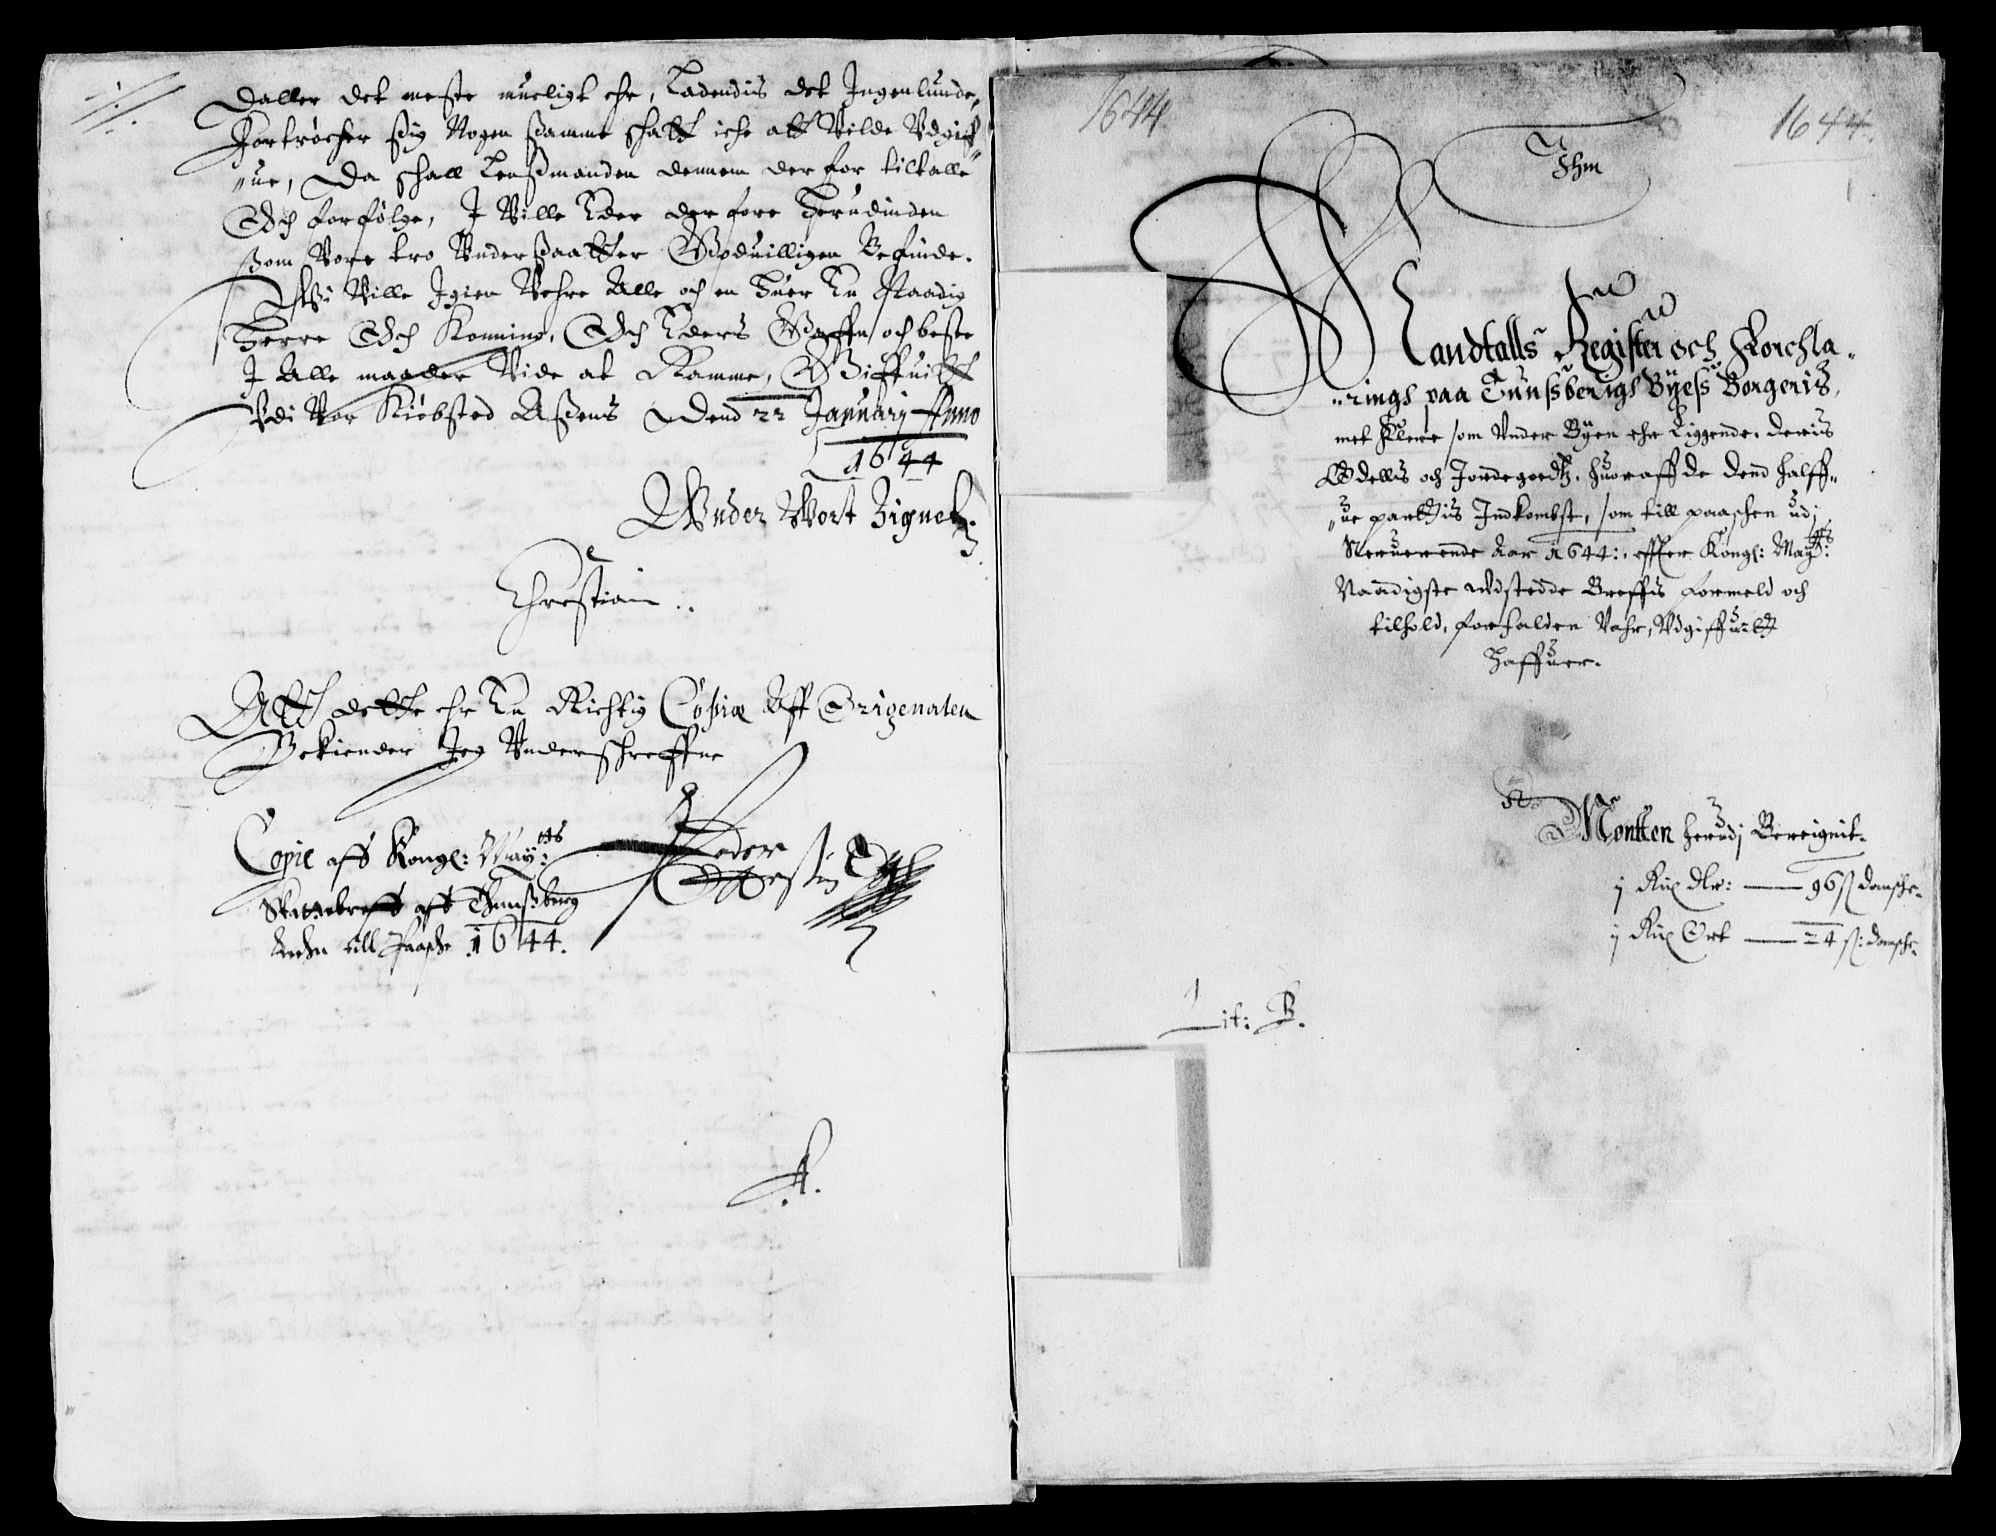 Daller det meste mueligt ehr, Ladendis det Ingenlunde,
Fortrøcher sig Nogen samme skatt iche att Wilde Udgiff„
„ue, Da schall Lenßmanden dennem der for tiltalle
Och forfølge, I Wille Eder der fore Herudinden
ßom Vore tro Undersaatter Godvilligen Befinde.
Wii Wille Igien Wehre Alle och en Huer En Naadig
Herre Och Konning, Och Eders Gaffn och beste
I Alle maader Vide at Ramme, Giffuitt
Udi Vor Kiøbsted Aßens Dend 22 Januarij Anno
1644
Under Wort Zignetz.
Christian..
Att dette ehr En Richtig Copia Aff Originalen
Bekiender Jeg Underschreffne
Peder
Copie aff Kongl: May:tts
Skattebreff aff Thunßberg
Lehn till Paasche 1644.
A.
1644
1644.
1
Ihm
Mandtalls Register och Forchla„
„rings paa Tunsberigs Byeß Borgeris,
met flere som Under Byen ehr Liggende. Deris
Odellis och Jordegodtz, huoraff de dend halff„
„ue partis Indkombst, som till paaschen udj
Neruerende Aar 1644:, effter Kongl: May:tts
Naadigste udstedde Breffis formeld och
tilhold, forfalden Vahr, Udgiffuitt
Haffuer.
Mønten herudj Bereignit.
j Rix Dlr: — 96 ß danske.
j Rix Ort — 24 ß: danske.
Lit: B.